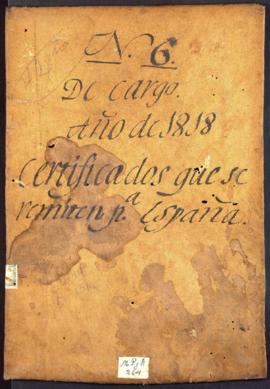 N. 6.
De cargo.
Año de 1818
Certificados que se
remiten pa España.
264